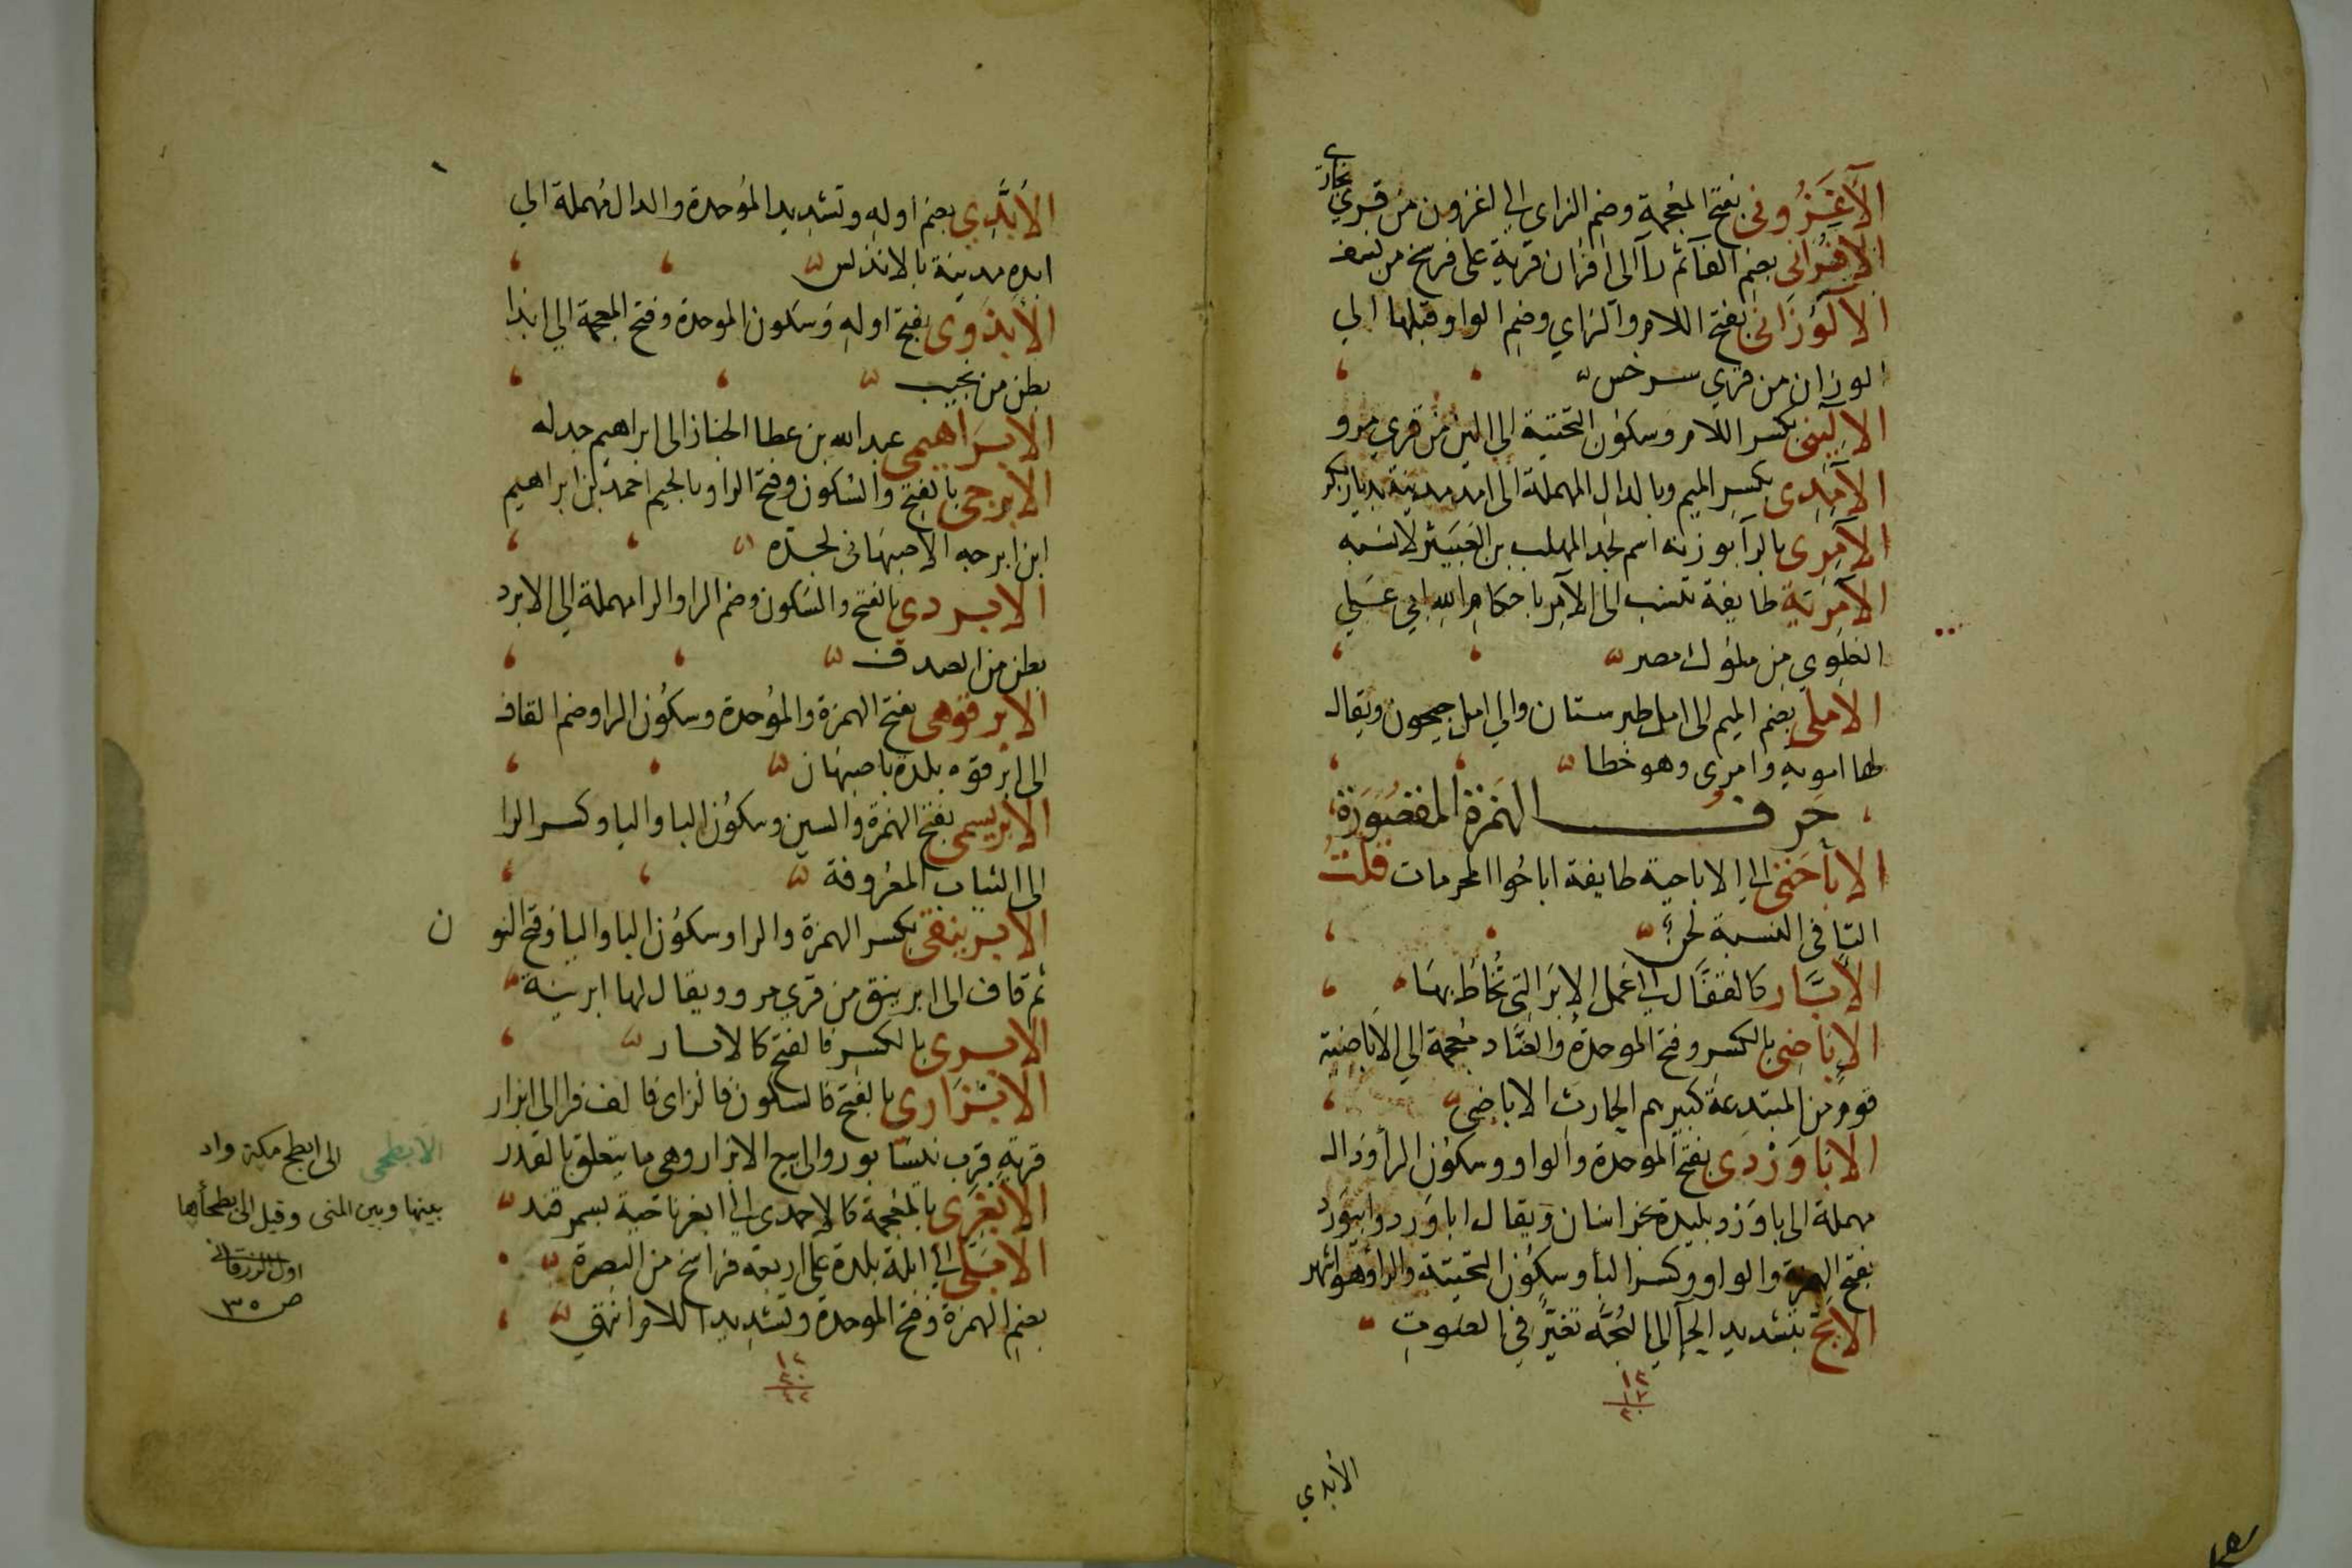 الآغَزُونى بفتح المعجمة وضم الزاى الى اغزون من قرى بخارى
الآفُرانى بضم الفآ ثم رآ الى افران قرية على فرسخ من نسف
الآلُوزَانى بفتح اللام والزاي وضم الواو قبلها الي
الوزان من قري سرخس
الآلِينى بكسر اللام وسكون التحتية الى الين من قري مرو
الآمِدِى بكسر الميم وبالدال المهملة الى امد مدينة بديار بكر
الآمِرِى بالرآ بوزنه اسم لجد المهلب بن العيثر لا نسبه
الآمِرية طايفة تنسب الى الآمر باحكام الله ابي علي
العلوي من ملوك مصر
الآملى بضم الميم الى امل طبرستان والي امل جيحون ويقال
لها امويه وامرى وهو خطا
حرف الهمزة المقصورة
الاباحتى الي الاباحية طايفة اباحوا المحرمات قلت
التا فى النسبة لحن
الأبَّار كالقفَّال الى عمل الإبَر التي تُخاط بها
الاباضى بالكسر وفتح الموحدة والضَّاد معجمة الي الاباضية
قوم من المبتدعة كبيرهم الحارث الاباضى
الابَاوَرْدِى بفتح الموحدة والواو وسكون الرأ ودال
مهملة الى باوَرْد بليدة بخراسان ويقال اباوَرد وابيوَرْد
بفتح الهمزة والواو وكسر البأ وسكون التحتية والرأ وهو اشهر
الابَحّ بتشديد الحآ الي البُحَّه تغيّر في الصوت
الأبدي
الاُبَّدِي بضم اوله وتشديد المُوحدة والدال مُهملة الي
ابده مدينة بالاندلس
الأبْذَوى بفتح اوله وسكون الموحدة وفتح المعجمة الي ابذا
بطن من تجيب
الابراهيمى عبد الله بن عطا الخباز الى ابراهيم جد له
الابرجى بالفتح والسكون وفتح الرا وبالجيم احمد بن ابراهيم
ابن ابرجه الاصبهانى لجده
الابردي بالفتح والسكون وضم الرا والرا مهملة الي الابرد
بطن من الصدف
الابرقوهى بفتح الهمزة والمُوحدة وسكُون الرا وضم القاف
الى ابرقوه بلدة باصبهان
الابريسمى بفتح الهمزة والسين وسكُون البا واليا وكسر الرا
الى الثياب المعروفة
الابرينقى بكسر الهمزة والرا وسكوُن البا واليا وفتح النو ن
ثم قاف الى ابرينق من قري مرو ويقال لها ابرينه
الابرى بالكسر فالفتح كالابار
الابْزَارِى بالفتح فالسكون فالزاى فالف فرا الى ابزار
قرية قرب نيسابور والى بيع الابزار وهى ما يتعلق بالقدر
الابغرى بالمعجمة كالاحمدى الي ابغر ناحية بسمرقند
الابلى الي ابلة بلدة على اربعة فراسخ من البصرة
بضم الهمزة وفتح الموحدة وتشديد اللام انتهي
الابطحى الى ابطح مكة واد
بينها وبين المنى وقيل الى بطحأها
اول الزرقانى
ص ٣٥